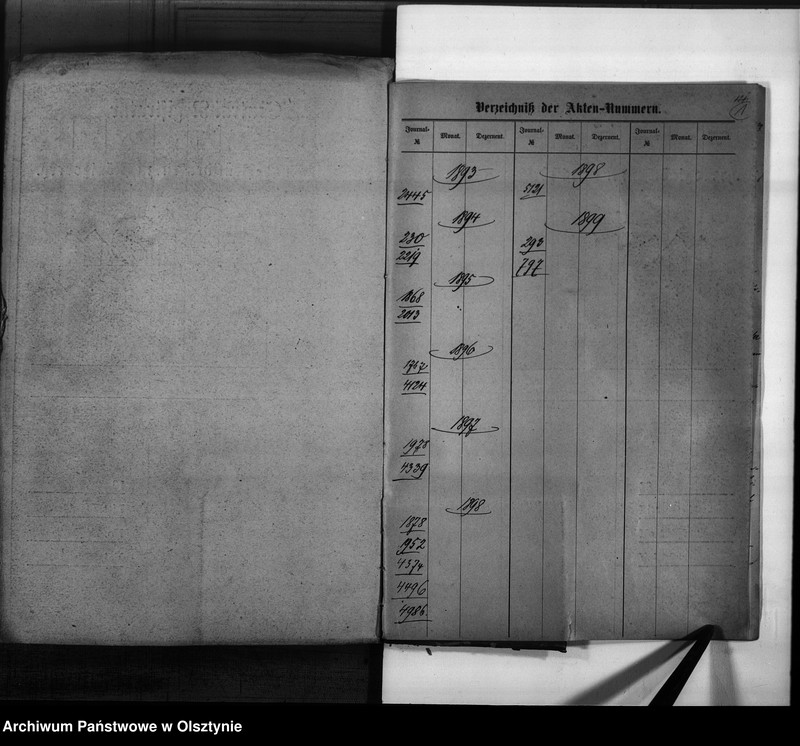 Verzeichniß der Akten-Nummern.
Journal-№ Monat. Dezernent. Journal-№ Monat. Dezernent. Journal-№ Monat. Dezernent.
1893
2445
1894
230
2219
1895
1868
2013
1896
1767
4124
1897
1978
4339
1898
1878
952
4374
4496
4986
1898
5121
1899
293
797
Archiwum Państwowe w Olsztynie